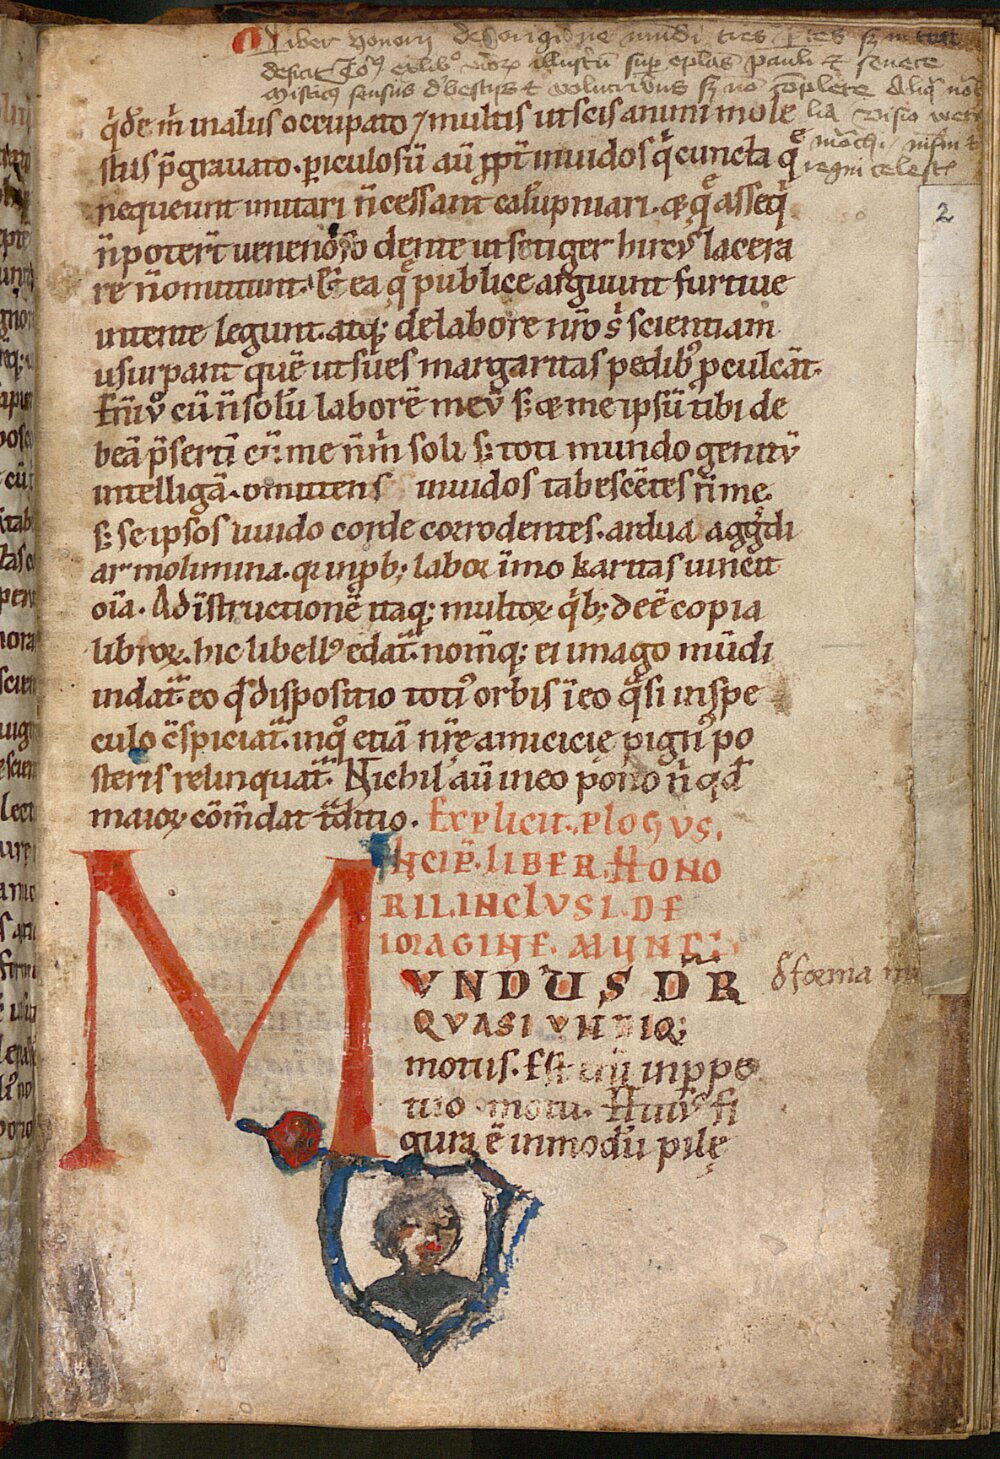 Liber honorij de origine mundi tres ptes
deficit Itē ex libro viroꝝ illustriū sup eplas pauli et senece
Misticus sensus de bestijs et volucribus complete Aliq̄
q̇de m̄ inalus occupato ⁊ multis ut scis animi mole
stiis p̄grauato. periculosū aū ppt̄ inuidos q̇ cuncta q̄
nequeunt imitari n̄ cessant calūpniari. ⁊ q̄ asseq̇
n̄ poter̄t uenenoso dente ut setiger hircꝰ lacera
re n̄ omittunt. Et ea q̄ publice arguunt furtiue
intente legunt. atq; de labore nr̄o s̓ scientiam
usurpant quē ut sues margaritas pedibꝰ pculcāt.
cū n̄ solū laborē meū s; ⁊ me ipsū tibi de
beā p̄sertī cū me n̄ m̓ soli s; toti mundo genitū
intelligā. omittens inuidos tabescētes n̄ me.
s; se ipsos liuido corde corrodentes. ardua agg̓di
ar molimina. q̇ inpb; labor īmo karitas uincit
oīa. Ad īstructionē itaq; multoꝝ q̇b; deē copia
libroꝝ. hic libellꝰ edat̄. nomq; ei imago mūdi
indat̄ eo qd dispositio totiꝰ orbis ī eo q̇si in spe
culo c̄spiciat̄. in qͦ etiā nr̄e amicicię pignꝰ po
steris relinquat̄. Nichil aū in eo pono n̓ qd
maioꝝ cōm̄dat t̄ditio. Explicit. plogVS.
INCIP̄. LIBER. HONO
RII. INCLVSI. DE
IMAGINE. MVNDI.
MVNDUS DR̄
QVASI VNDIQ;
motus. Est eni in ppe
tuo motu. Huiꝰ fi
gura ē in modū pilę
2